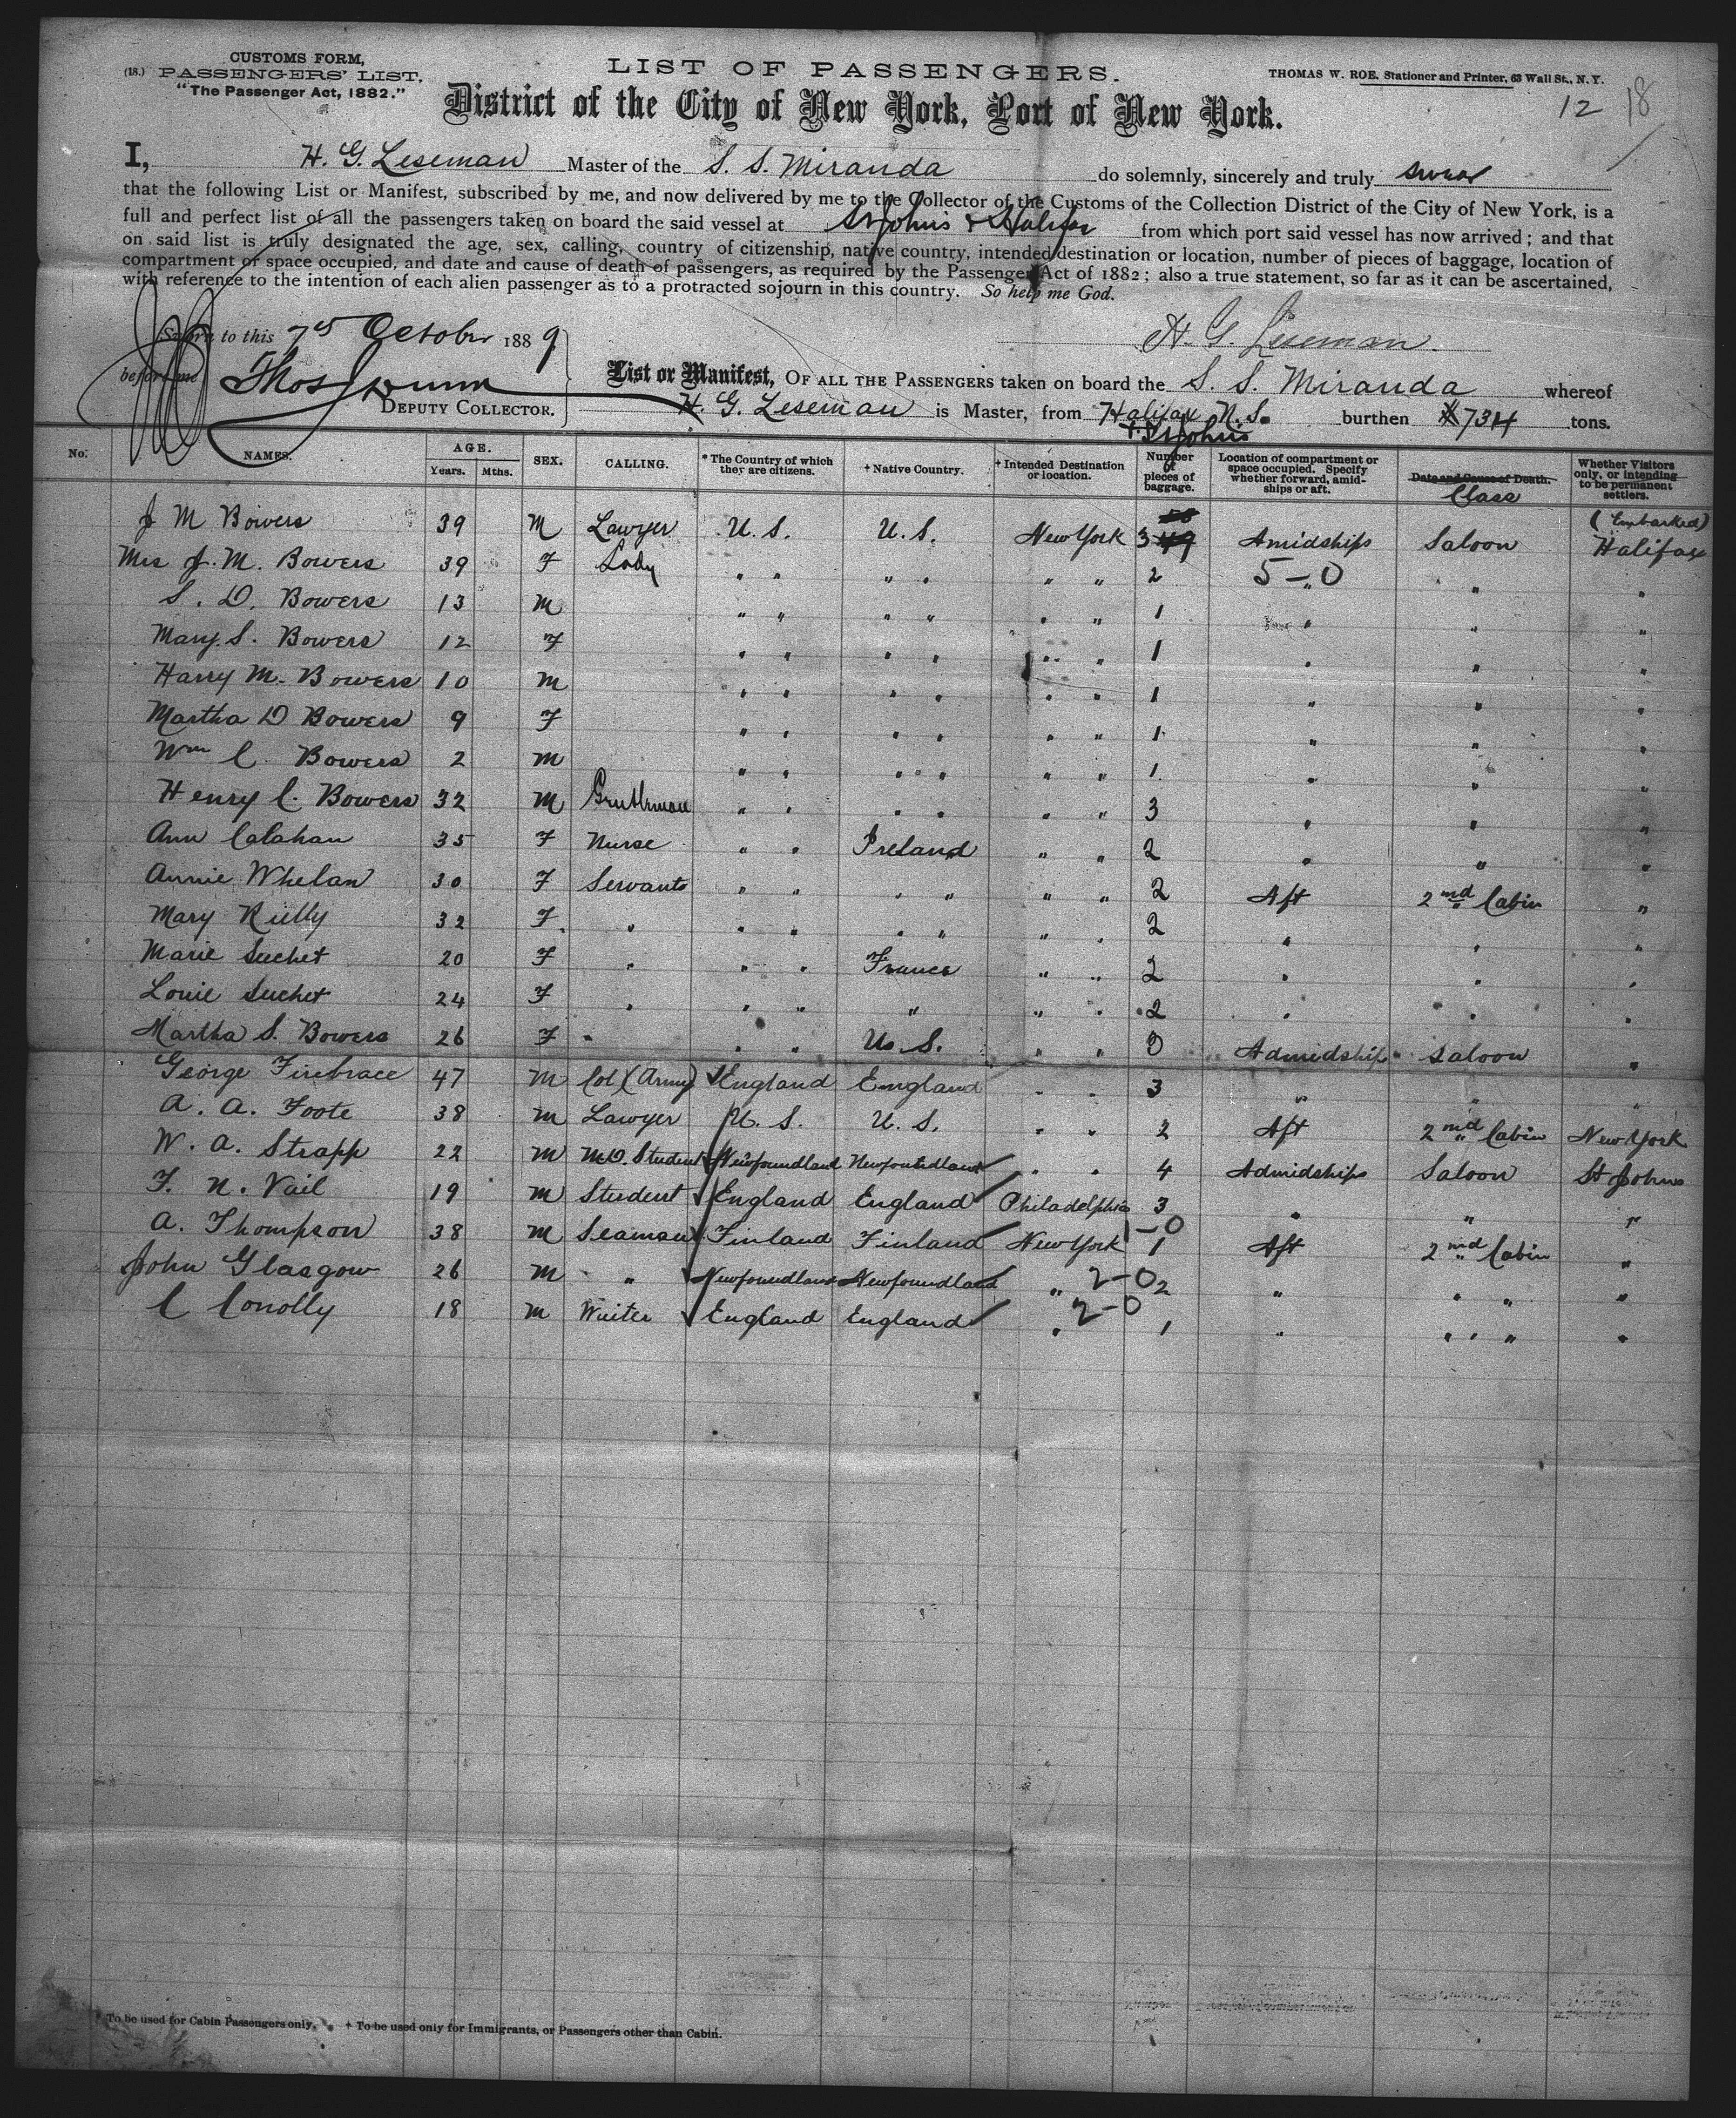 CUSTOMS FORM,
(18.) PASSENGERS' LIST.
"The Passenger Act, 1882."
LIST OF PASSENGERS.
THOMAS W. ROE, Stationer and Printer, 63 Wall St., N. Y.
12 18
District of the City of New York, Port of New York.
I, H. G. Leseman Master of the S. S. Miranda do solemnly, sincerely and truly swear
that the following List or Manifest, subscribed by me, and now delivered by me to the Collector of the Customs of the Collection District of the City of New York, is a
full and perfect list of all the passengers taken on board the said vessel at St Johns & Halifax from which port said vessel has now arrived; and that
on said list is truly designated the age, sex, calling, country of citizenship, native country, intended destination or location, number of pieces of baggage, location of
compartment or space occupied, and date and cause of death of passengers, as required by the Passenger Act of 1882; also a true statement, so far as it can be ascertained,
with reference to the intention of each alien passenger as to a protracted sojourn in this country. So help me God.
Sworn to this 7th October 1889 H. G. Leseman
before me Thos
DEPUTY COLLECTOR.
List or Manifest, OF ALL THE PASSENGERS taken on board the S. S. Miranda whereof
H. G. Leseman is Master, from Halifax N. S. burthen 734 tons.
+ St Johns
No. NAMES. AGE. Years. Mths. SEX. CALLING. * The Country of which they are citizens. † Native Country. † Intended Destination or location. Number of pieces of baggage. Location of compartment or space occupied. Specify whether forward, amidships or aft. Date and Cause of Death. Class Whether Visitors only, or intending to be permanent settlers.
(Embarked)
J M Bowers 39 M Lawyer U. S. U. S. New York 3 Amidships Saloon Halifax
Mrs J. M. Bowers 39 F Lady " " " " " " 2 5-0 " " "
S. D. Bowers 13 M " " " " " " 1 " " "
Mary S. Bowers 12 F " " " " " " 1 " " "
Harry M. Bowers 10 M " " " " " " 1 " " "
Martha D Bowers 9 F " " " " " " 1 " " "
Wm C. Bowers 2 M " " " " " " 1 " " "
Henry C. Bowers 32 M Gentleman " " " " " " 3 " " "
Ann Calahan 35 F Nurse " " Ireland " " 2 " " "
Annie Whelan 30 F Servants " " " " " " 2 Aft 2nd Cabin "
Mary Rielly 32 F " " " " " " " 2 " " "
Marie Suchet 20 F " " " France " " 2 " " "
Louie Suchet 24 F " " " " " " 2 " " "
Martha S. Bowers 26 F " " " U. S. " " 3 Admidships Saloon "
George Firebrace 47 M Col (Army) England England " " 3 " " "
A. A. Foote 38 M Lawyer U. S. U. S. " " 2 Aft 2nd Cabin New York
W. A. Strapp 22 M M.D. Student Newfoundland Newfoundland " " 4 Admidships Saloon St Johns
F. N. Vail 19 M Student England England Philadelphia 3 " " "
A. Thompson 38 M Seaman Finland Finland New York 1-0 1 Aft 2nd Cabin "
John Glasgow 26 M " Newfoundland Newfoundland " 2-0 2 " " " "
C Conolly 18 M Waiter England England " 2-0 1 " " " " "
* To be used for Cabin Passengers only. † To be used only for Immigrants, or Passengers other than Cabin.